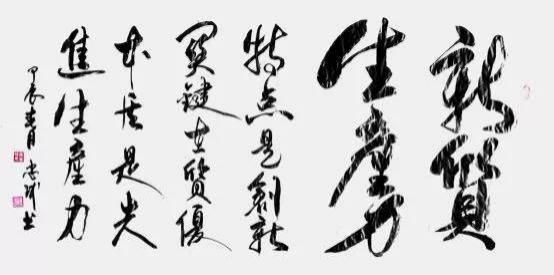 新質
生產力
特点是創新
関鍵在質優
本质是先
進生產力
甲辰春月
书